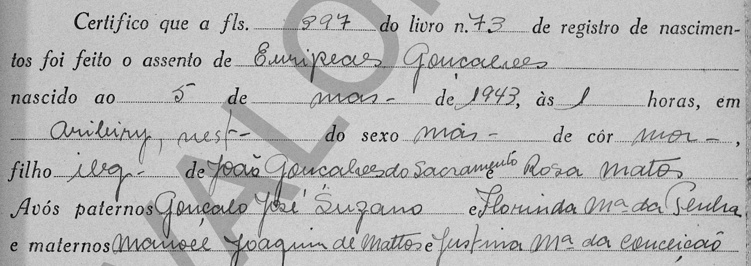 Certifico que a fls. 397 do livro n. 73 de registro de nascimen-
tos foi feito o assento de Euripedes Gonçalves
nascido ao 5 de de 1943, às 1 horas, em
Aribiry, nest- do sexo mas- de côr mor-,
filho ileg- de João Gonçalves do Sacramento e Rosa Matos
Avós paternos Gonçalo José Suzano e Florinda Mª da Penha
e maternos Manoel Joaquim de Mattos e Justina Mª da Conceição
VALO